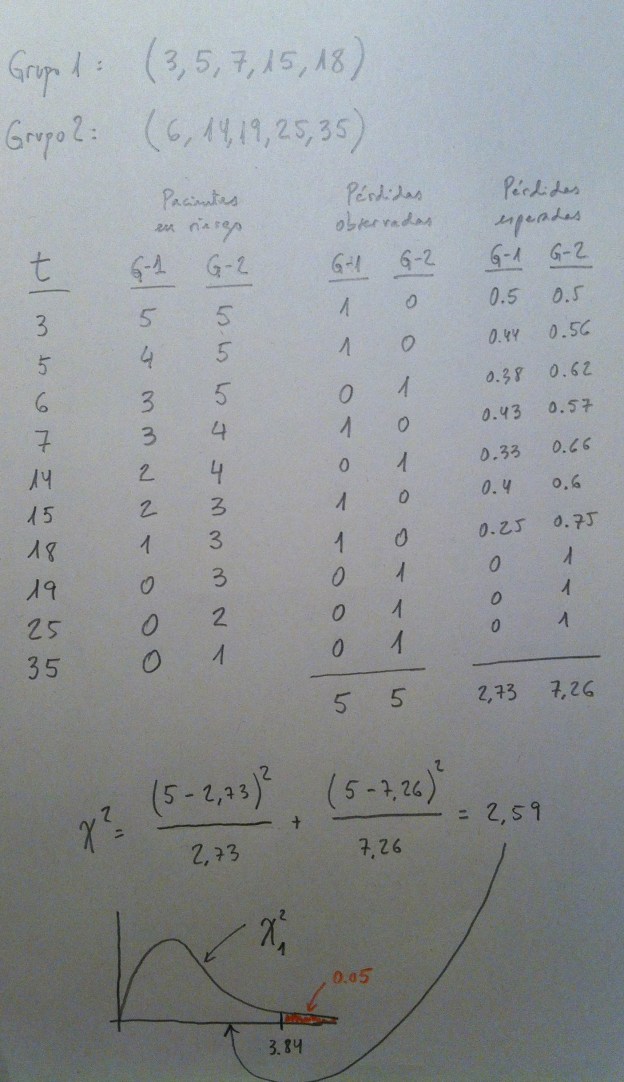 Grupo 1: (3, 5, 7, 15, 18)
Grupo 2: (6, 14, 19, 25, 35)
Pacientes en riesgo Pérdidas observadas Pérdidas esperadas
t G-1 G-2 G-1 G-2 G-1 G-2
3 5 5 1 0 0.5 0.5
5 4 5 1 0 0.44 0.56
6 3 5 0 1 0.38 0.62
7 3 4 1 0 0.43 0.57
14 2 4 0 1 0.33 0.66
15 2 3 1 0 0.4 0.6
18 1 3 1 0 0.25 0.75
19 0 3 0 1 0 1
25 0 2 0 1 0 1
35 0 1 0 1 0 1
5 5 2,73 7,26
χ² = (5 - 2,73)² / 2,73 + (5 - 7,26)² / 7,26 = 2,59
χ²₁
0.05
3.84